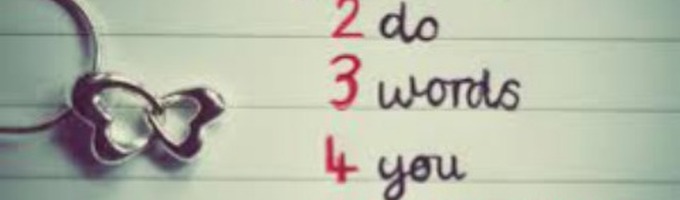 2 do
3 words
4 you